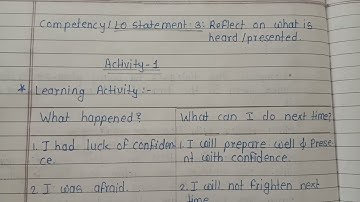 Competency/LO statement: 3: Reflect on what is
heard/presented.
Activity-1
* Learning Activity:-
What happened? What can I do next time?
1. I had luck of confiden
ce.
1. I will prepare well & Prese
nt with confidence.
2. I was afraid.
2. I will not frighten next
time